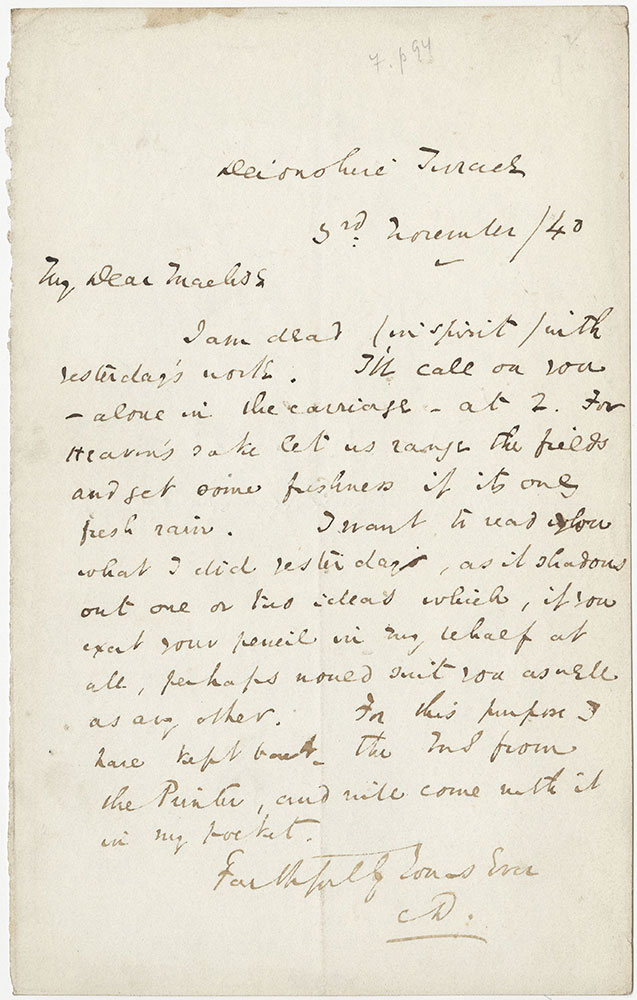 7. p 94
Devonshire Terrace
3rd. November /40
My Dear Maclise
I am dead (in spirit) with
yesterday's work. I'll call on you
- alone in the carriage - at 2. For
Heaven's sake let us range the fields
and get some freshness if its only
fresh rain. I want to read you
what I did yesterday, as it shadows
out one or two ideas which, if you
exert your pencil in my behalf at
all, perhaps would suit you as well
as any other. For this purpose I
have kept back the MS from
the Printer, and will come with it
in my pocket.
Faithfully Yours Ever
CD.